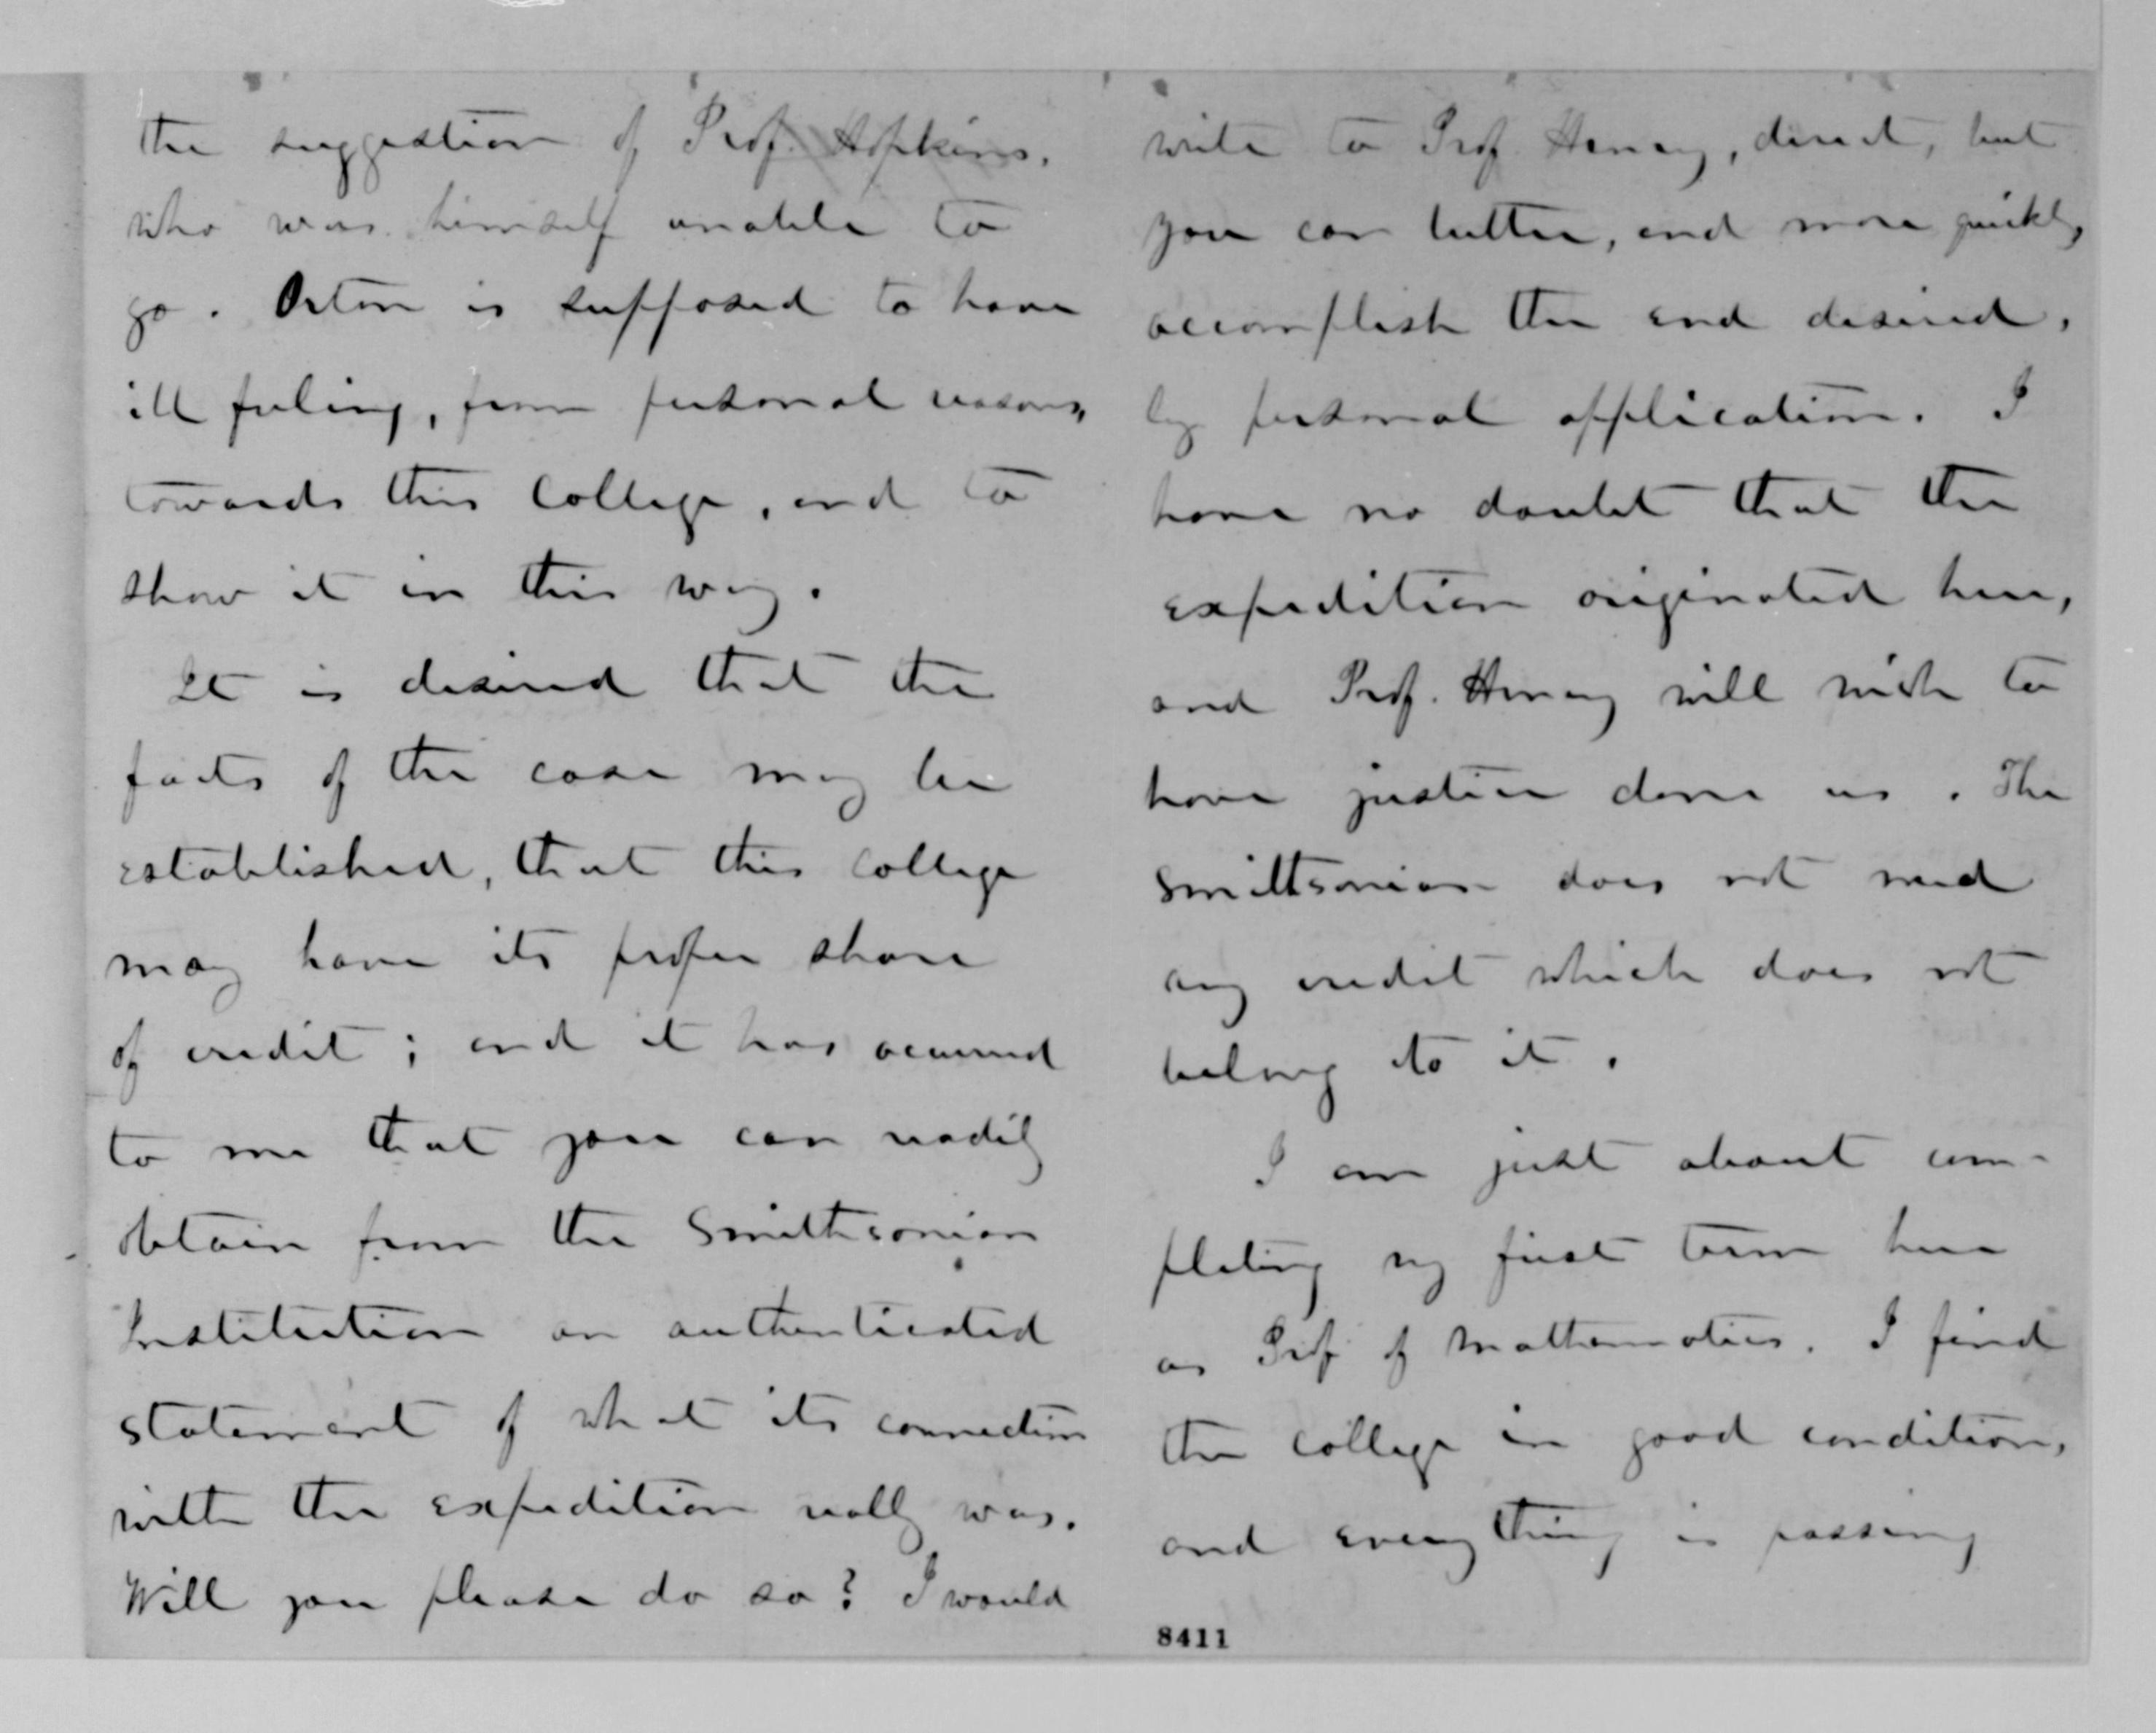 the suggestion of Prof. Hopkins,
who was himself unable to
go. Orton is supposed to have
ill feeling, from personal reasons,
towards this College, and to
show it in this way.
It is desired that the
facts of the case may be
established, that this College
may have its proper share
of credit; and it has occurred
to me that you can readily
obtain from the Smithsonian
Institution an authenticated
statement of what its connection
with the expedition really was.
Will you please do so? I would
write to Prof Henry, direct, but
you can better, and more quickly,
accomplish the end desired,
by personal application. I
have no doubt that the
expedition originated here,
and Prof. Henry will wish to
have justice done us. The
Smithsonian does not need
any credit which does not
belong to it.
I am just about com-
pleting my first term here
as Prof of Mathematics. I find
the college in good condition,
and every thing is passing
8411